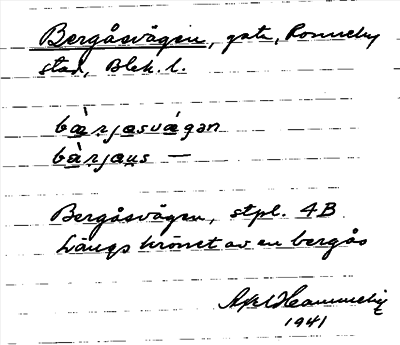 Bergåsvägen, gata, Ronneby
stad, Blek. l.
bæ̀rjasvægən
bæ̀rjaus —
Bergåsvägen, stpl. 4B
Längs krönet av en bergås
1941